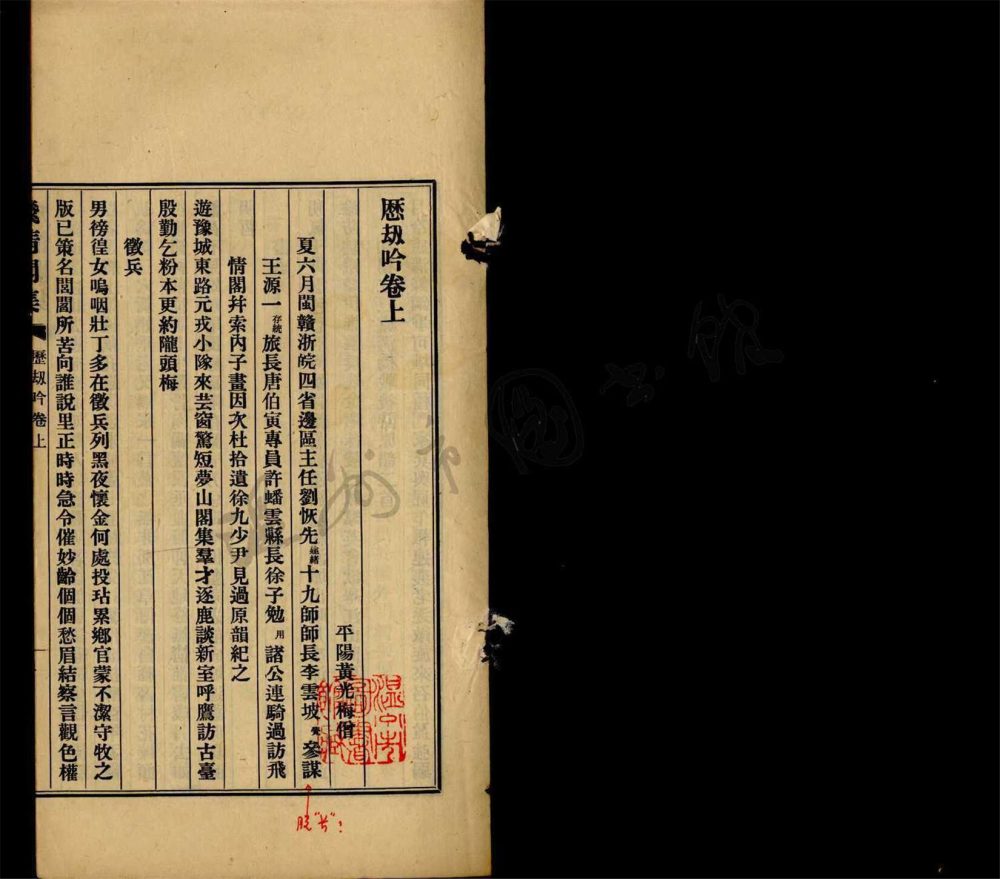 歷刧吟卷上
平陽黃光梅僧
夏六月閩贛浙皖四省邊區主任劉恢先建緒十九師師長李雲坡覺參謀
王源一存統旅長唐伯寅專員許蟠雲縣長徐子勉用諸公連騎過訪飛
情閣幷索內子畫因次杜拾遺徐九少尹見過原韻紀之
遊豫城東路元戎小隊來芸窗驚短夢山閣集羣才逐鹿談新室呼鷹訪古臺
殷勤乞粉本更約隴頭梅
徵兵
男徬徨女嗚咽壯丁多在徵兵列黑夜懷金何處投玷累鄉官蒙不潔守牧之
版已策名閭閻所苦向誰說里正時時急令催妙齡個個愁眉結察言觀色權
情閣集
歷刧吟卷上
脫"長"?
溫州市圖書館